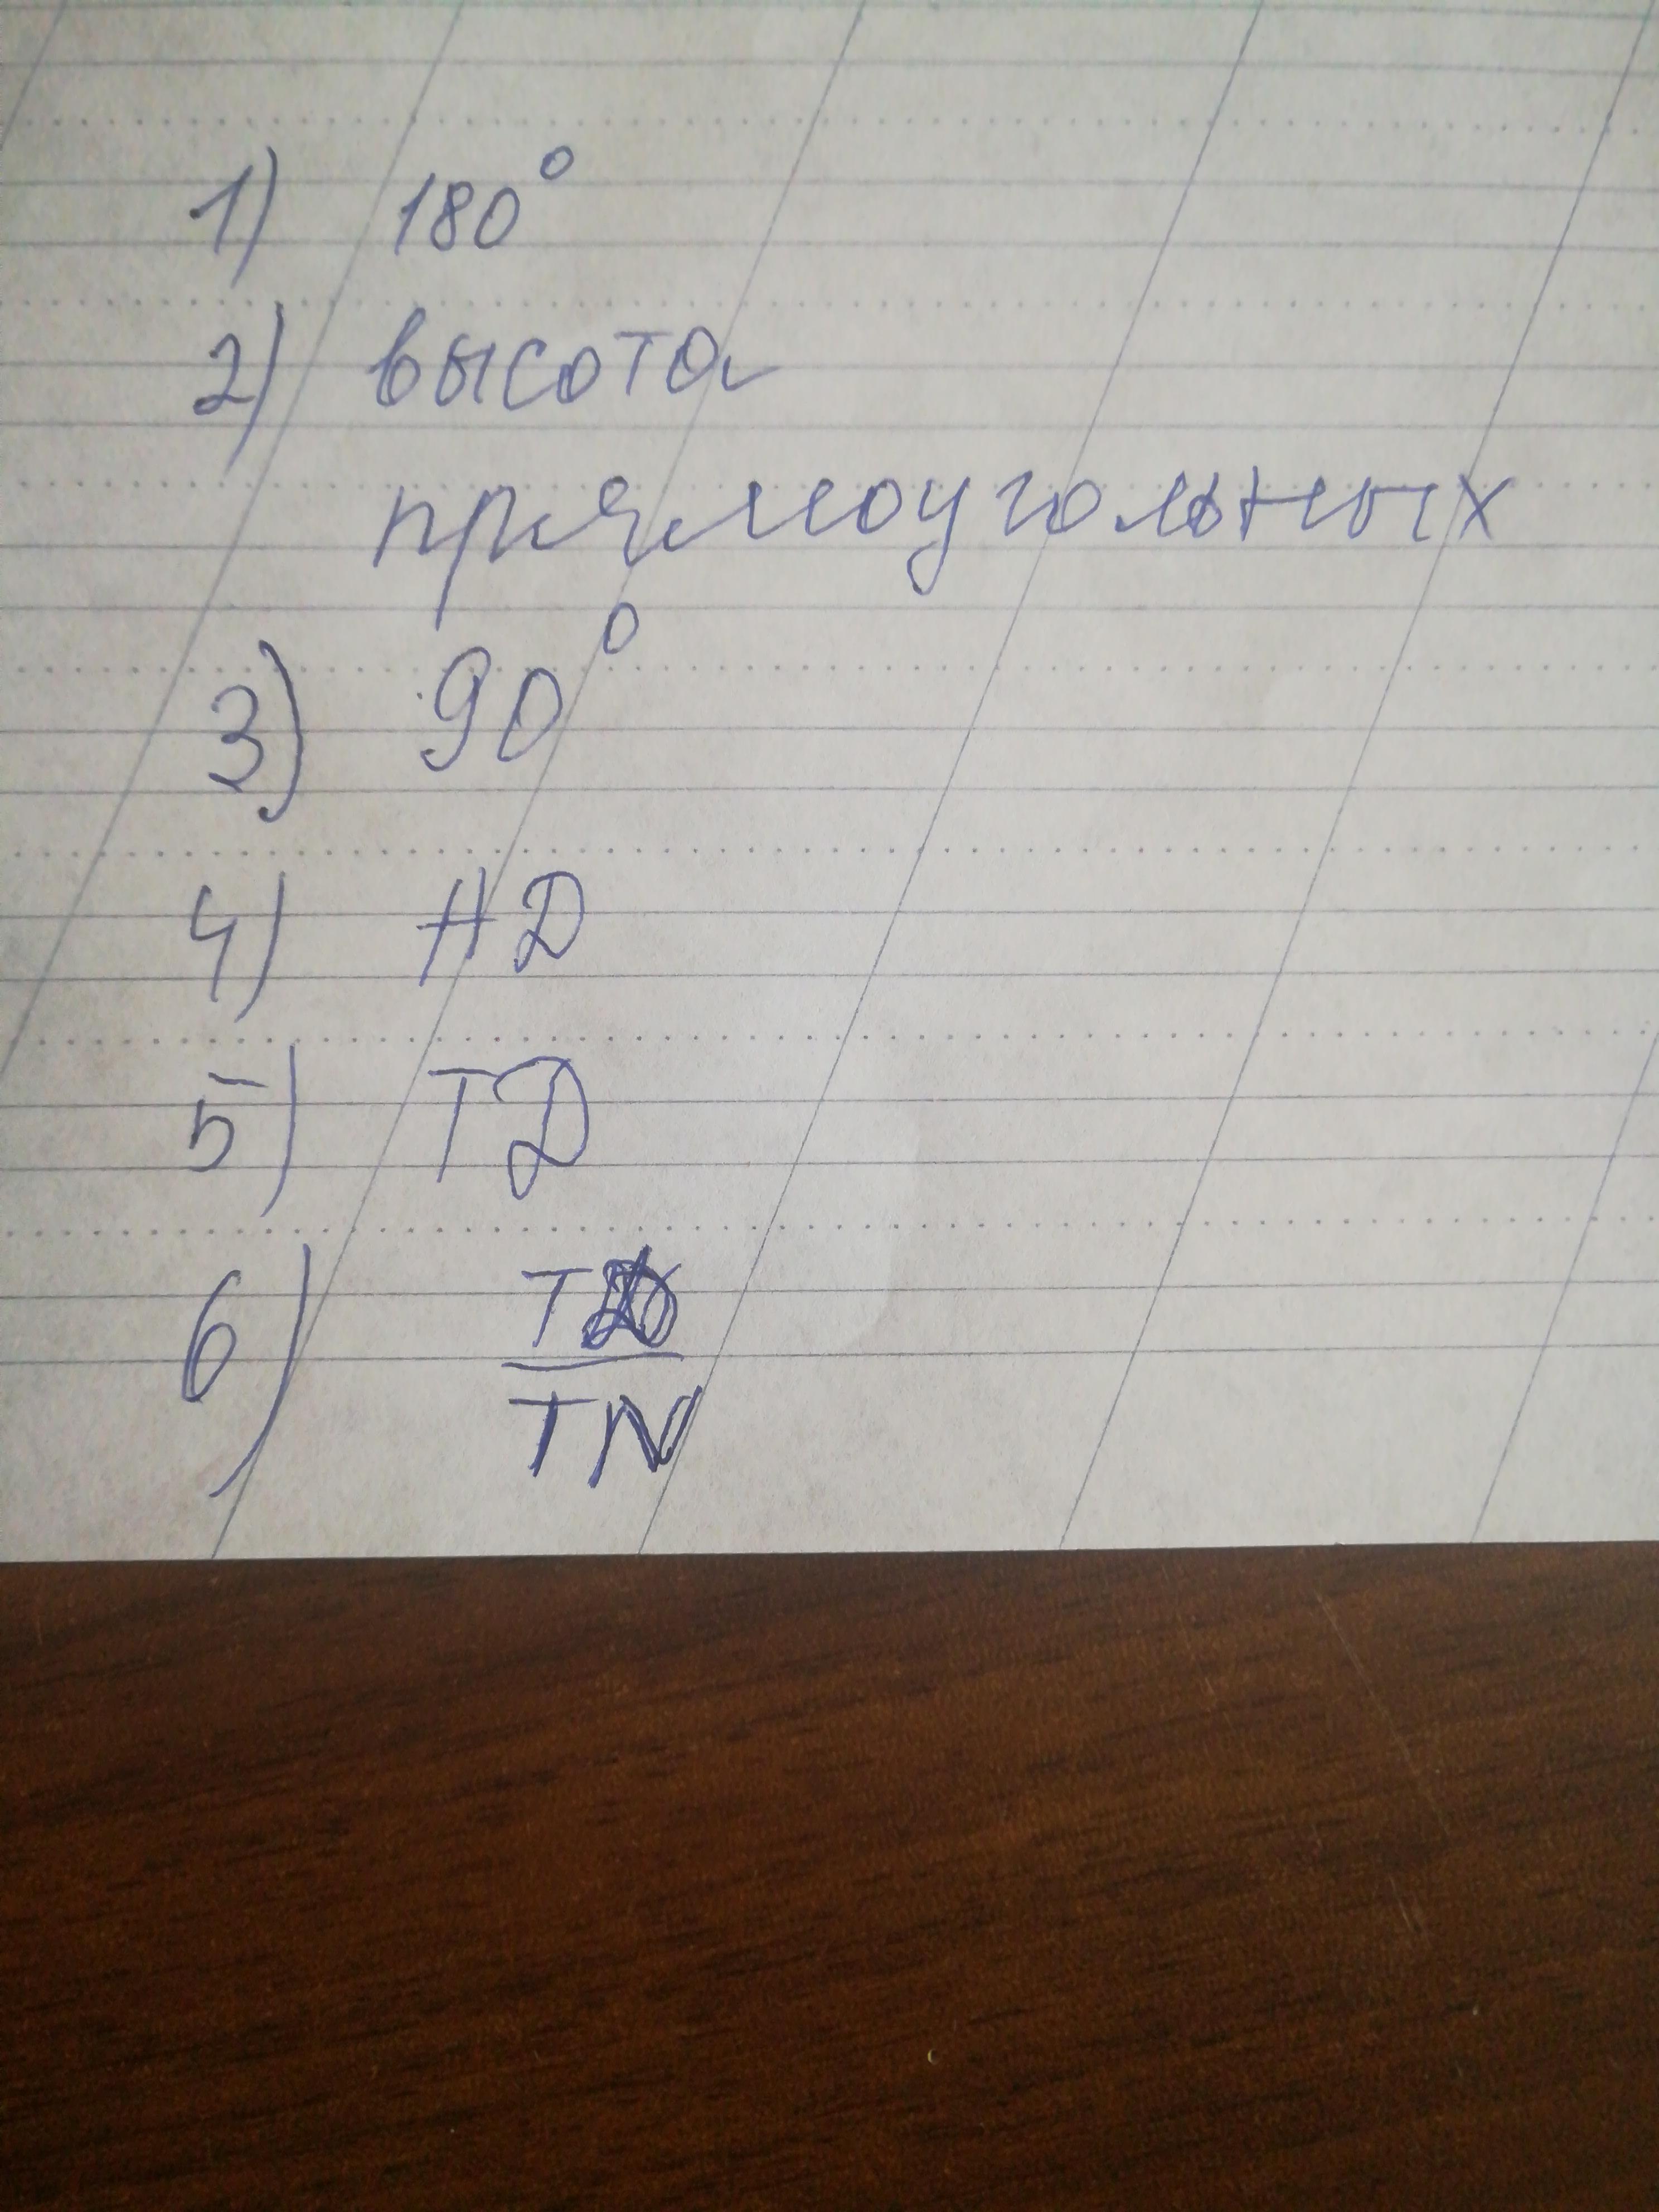 1) 180°
2) высота
прямоугольных
3) 90°
4) НД
5) ТД
6) Т
TN